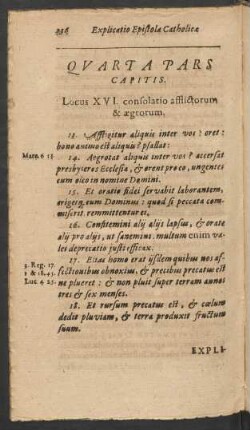 238 Explicatio Epistolæ Catholicæ
QVARTA PARS
CAPITIS.
Locus XVI. consolatio afflictorum
& ægrorum.
13. Affligitur aliquis inter vos? oret:
bono animo est aliquis? psallat:
14. Aegrotat aliquis inter vos? accersat
presbyteros Ecclesiæ, & orent pro eo, ungentes
eum oleo in nomine Domini.
15. Et oratio fidei servabit laborantem,
eriget, eum Dominus: quod si peccata com-
miserit remmittentur ei,
16. Confitemini alij alijs lapsus, & orate
alij pro alijs, ut sanemini. multum enim va-
let deprecatio justi efficax.
17. Elias homo erat ijsdem quibus nos af-
fectionibus obnoxius, & precibus precatus est
ne plueret: & non pluit super terram annos
tres & sex menses.
18. Et rursum precatus est, & cœlum
dedit pluviam, & terra produxit fructum
suum.
EXPLI-